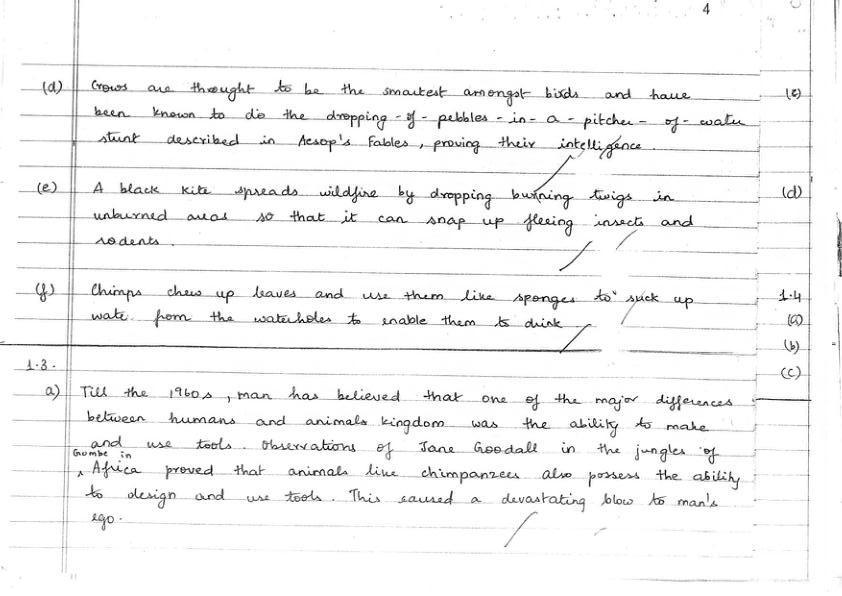 4
(d) Crows are throught to be the smartest amongst birds and have (c)
been known to do the dropping-of-pebbles-in-a-pitcher-of-water
stunt described in Aesop's Fables, proving their intelligence.
(e) A black kite spreads wildfire by dropping burning twigs in (d)
unburned areas so that it can snap up fleeing insects and
rodents.
(f) Chimps chew up leaves and use them like sponges to suck up 1.4
wate from the waterholes to enable them to drink (a)
(b)
1.3. (c)
a) Till the 1960s, man has believed that one of the major differences
between humans and animals kingdom was the ability to make
and use tools. Observations of Jane Goodall in the jungles of
Gombe in
Africa proved that animals like chimpanzees also possess the ability
to design and use tools. This caused a devastating blow to man's
ego.